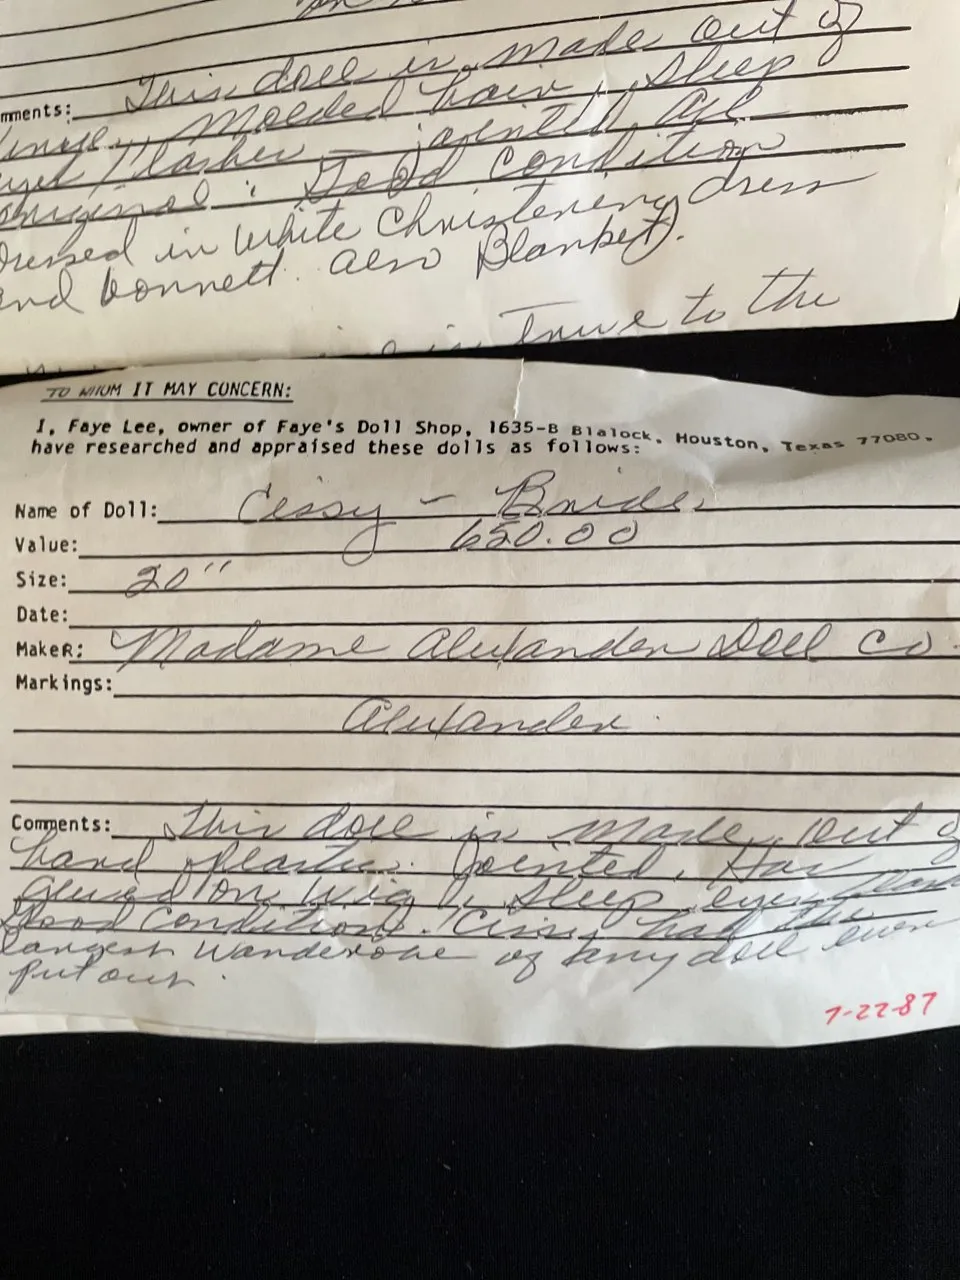 mments: This doll is made out of
Molded hair, Sleep
eyes / lashes - jointed, All
original : Good condition
Dressed in white Christening dress
and bonnett. also Blanket).
is True to the
TO WHOM IT MAY CONCERN:
I, Faye Lee, owner of Faye's Doll Shop, 1635-B Blalock, Houston, Texas 77080,
have researched and appraised these dolls as follows:
Name of Doll: Cissy - Bride
Value: 650.00
Size: 20"
Date:
Maker: Madame Alexander Doll Co.
Markings:
Alexander
Comments: This doll is made out of
hard plastic. Jointed, Has
glued on wig, Sleep eyes
Good condition. Cissy had the
largest wanderobe of any doll ever
put out.
7-22-87